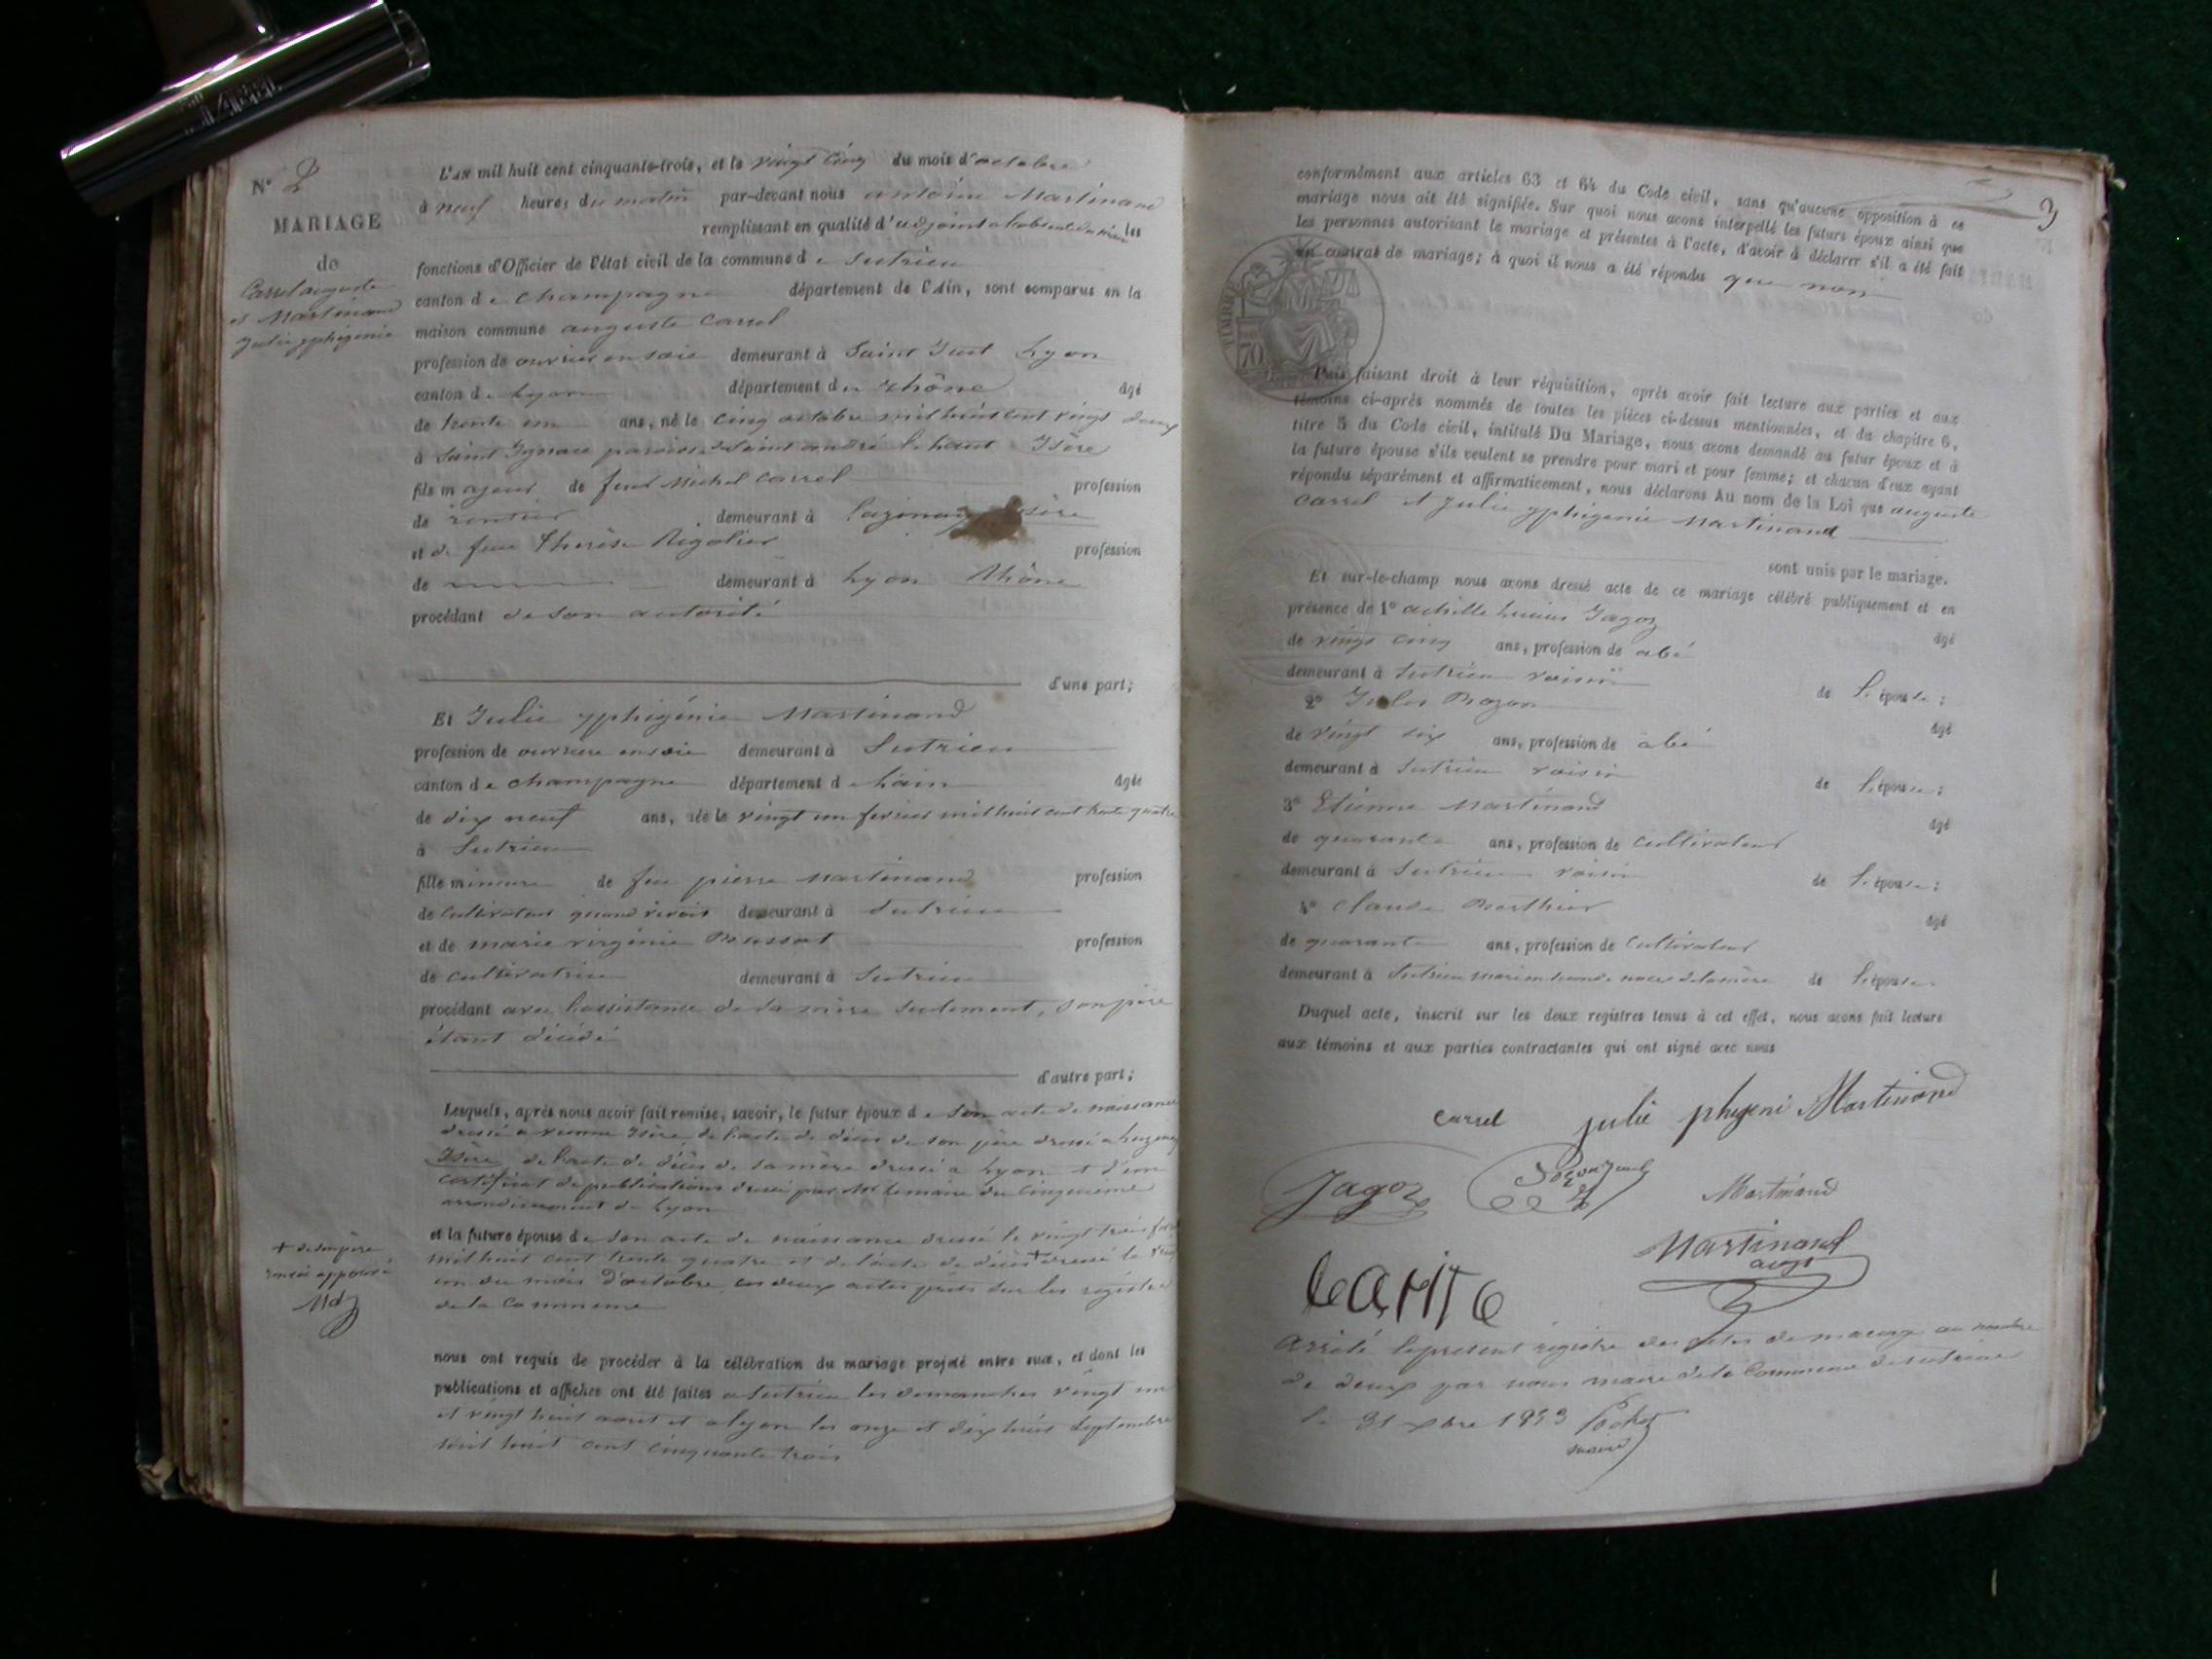 N° 2
MARIAGE
de
Carrel auguste
et Martinand
Julie yphigenie
L'AN mil huit cent cinquante-trois, et le vingt cinq du mois d'octobre
à neuf heures du matin par-devant nous antoine Martinand
remplissant en qualité d'adjoint les
fonctions d'Officier de l'état civil de la commune de Sutrieu
canton de champagne département de l'Ain, sont comparus en la
maison commune auguste Carrel
profession de ouvrier en soie demeurant à Saint Just Lyon
canton de Lyon département du rhône âgé
de trente un ans, né le cinq octobre mil huit cent vingt deux
à Saint Ignace paroisse Saint andré le haut Isère
fils majeur de feu Michel Carrel profession
de rentier demeurant à
et de feue Thérèse Rigolier profession
de demeurant à Lyon Rhône
procédant de son autorité
d'une part;
Et Julie yphigénie Martinand
profession de ouvriere en soie demeurant à Sutrieu
canton de champagne département de Lain âgée
de dix neuf ans, née le vingt un fevrier mil huit cent trente quatre
à Sutrieu
fille mineure de feu pierre Martinand profession
de cultivateur quand vivait demeurant à Sutrieu
et de marie virginie Brussot profession
de cultivatrice demeurant à Sutrieu
procédant avec lassistance de sa mère seulement, son père
étant décédé
d'autre part;
Lesquels, après nous avoir fait remise, savoir, le futur époux de son acte de naissance
dressé a vienne Isère, de lacte de décès de son père dressé a
Isère, de lacte de décès de sa mère dressé a Lyon et d'un
certificat de publications dressé par Mr le maire du cinquième
arrondissement de Lyon
et la future épouse de son acte de naissance dressé le vingt trois
mil huit cent trente quatre et de lacte de décès + dressé le
un du mois d'octobre, ces deux actes sur les registres
de la commune
+ de son père
renvoi approuvé
Md
nous ont requis de procéder à la célébration du mariage projeté entre eux, et dont les
publications et affiches ont été faites a Sutrieu les dimanches vingt un
et vingt huit aout et a lyon les onze et dix huit septembre
mil huit cent cinquante trois
3
conformément aux articles 63 et 64 du Code civil, sans qu'aucune opposition à ce
mariage nous ait été signifiée. Sur quoi nous avons interpellé les futurs époux ainsi que
les personnes autorisant le mariage et présentes à l'acte, d'avoir à déclarer s'il a été fait
un contrat de mariage; à quoi il nous a été répondu que non
TIMBRE
70
Puis faisant droit à leur réquisition, après avoir fait lecture aux parties et aux
témoins ci-après nommés de toutes les pièces ci-dessus mentionnées, et du chapitre 6,
titre 5 du Code civil, intitulé Du Mariage, nous avons demandé au futur époux et à
la future épouse s'ils veulent se prendre pour mari et pour femme; et chacun d'eux ayant
répondu séparément et affirmativement, nous déclarons Au nom de la Loi que auguste
Carrel et Julie yphigenie Martinand
sont unis par le mariage.
Et sur-le-champ nous avons dressé acte de ce mariage célébré publiquement et en
présence de 1° achille Jagoz âgé
de vingt cinq ans, profession de abé
demeurant à Sutrieu voisin de l'épouse;
2° Jules Bozon âgé
de vingt six ans, profession de abé
demeurant à Sutrieu voisin de l'épouse;
3° Etienne Martinand âgé
de quarante ans, profession de cultivateur
demeurant à Sutrieu voisin de l'épouse;
4° Claude Berthier âgé
de quarante ans, profession de cultivateur
demeurant à Sutrieu de l'épouse
Duquel acte, inscrit sur les deux registres tenus à cet effet, nous avons fait lecture
aux témoins et aux parties contractantes qui ont signé avec nous
Carrel Julie phigeni Martinand
Jagoz Martinand
Martinand
Arrêté le present régistre des actes de mariage au nombre
de deux par nous maire de la Commune de Sutrieu
le 31 xbre 1853
maire